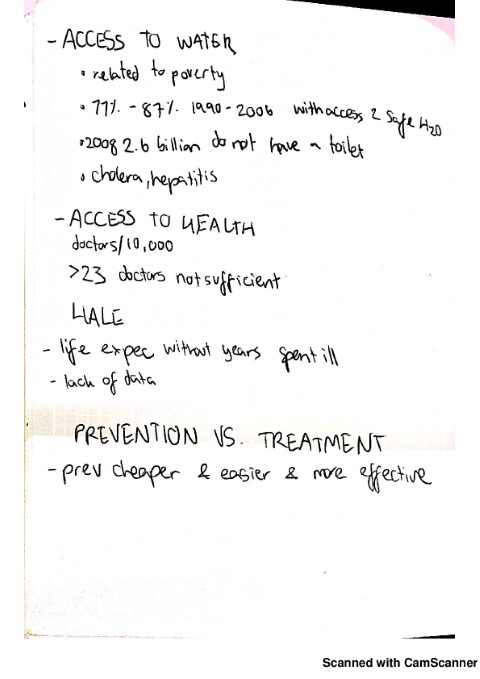 - ACCESS TO WATER
• related to poverty
• 77% - 87% 1990-2006 with access 2 Safe H20
• 2008 2.6 billion do not have a toilet
• cholera, hepatitis
- ACCESS TO HEALTH
doctors/10,000
>23 doctors not sufficient
HALE
- life expec without years spent ill
- lack of data
PREVENTION VS. TREATMENT
- prev cheaper & easier & more effective
Scanned with CamScanner